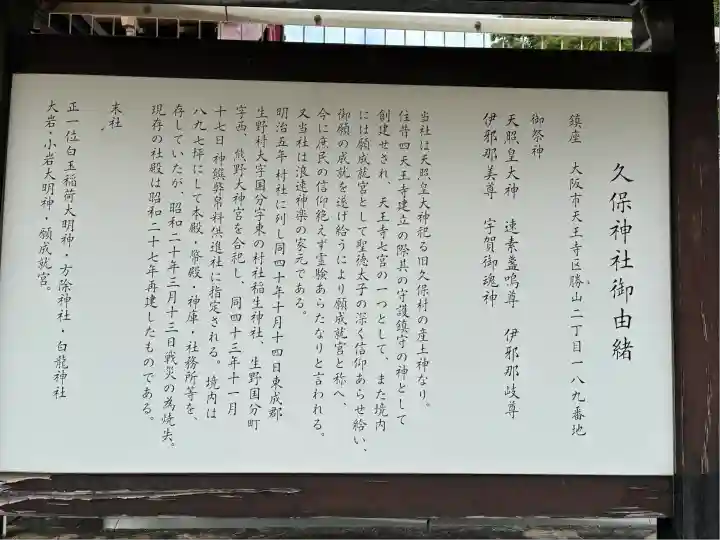 久保神社御由緒
鎮座　大阪市天王寺区勝山二丁目一八九番地
御祭神
天照皇大神　速素盞嗚尊　伊邪那岐尊
伊邪那美尊　宇賀御魂神
当社は天照皇大神祀る旧久保村の産土神なり。
往昔四天王寺建立の際其の守護鎮守の神として
創建せされ、天王寺七宮の一つとして、また境内
には願成就宮として聖徳太子の深く信仰あらせ給い、
御願の成就を遂げ給うにより願成就宮と称へ、
今に庶民の信仰絶えず霊験あらたなりと言われる。
又当社は浪速神楽の家元である。
明治五年村社に列し同四十年十月十四日東成郡
生野村大字国分字東の村社稲生神社、生野国分町
字西、熊野大神宮を合祀し、同四十三年十一月
十七日神饌弊帛料供進社に指定される。境内は
八九七坪にして本殿・幣殿・神庫・社務所等を、
存していたが、昭和二十年三月十三日戦災の為焼失。
現存の社殿は昭和二十七年再建したものである。
末社
正一位白玉稲荷大明神・方除神社・白龍神社
大岩・小岩大明神・願成就宮。